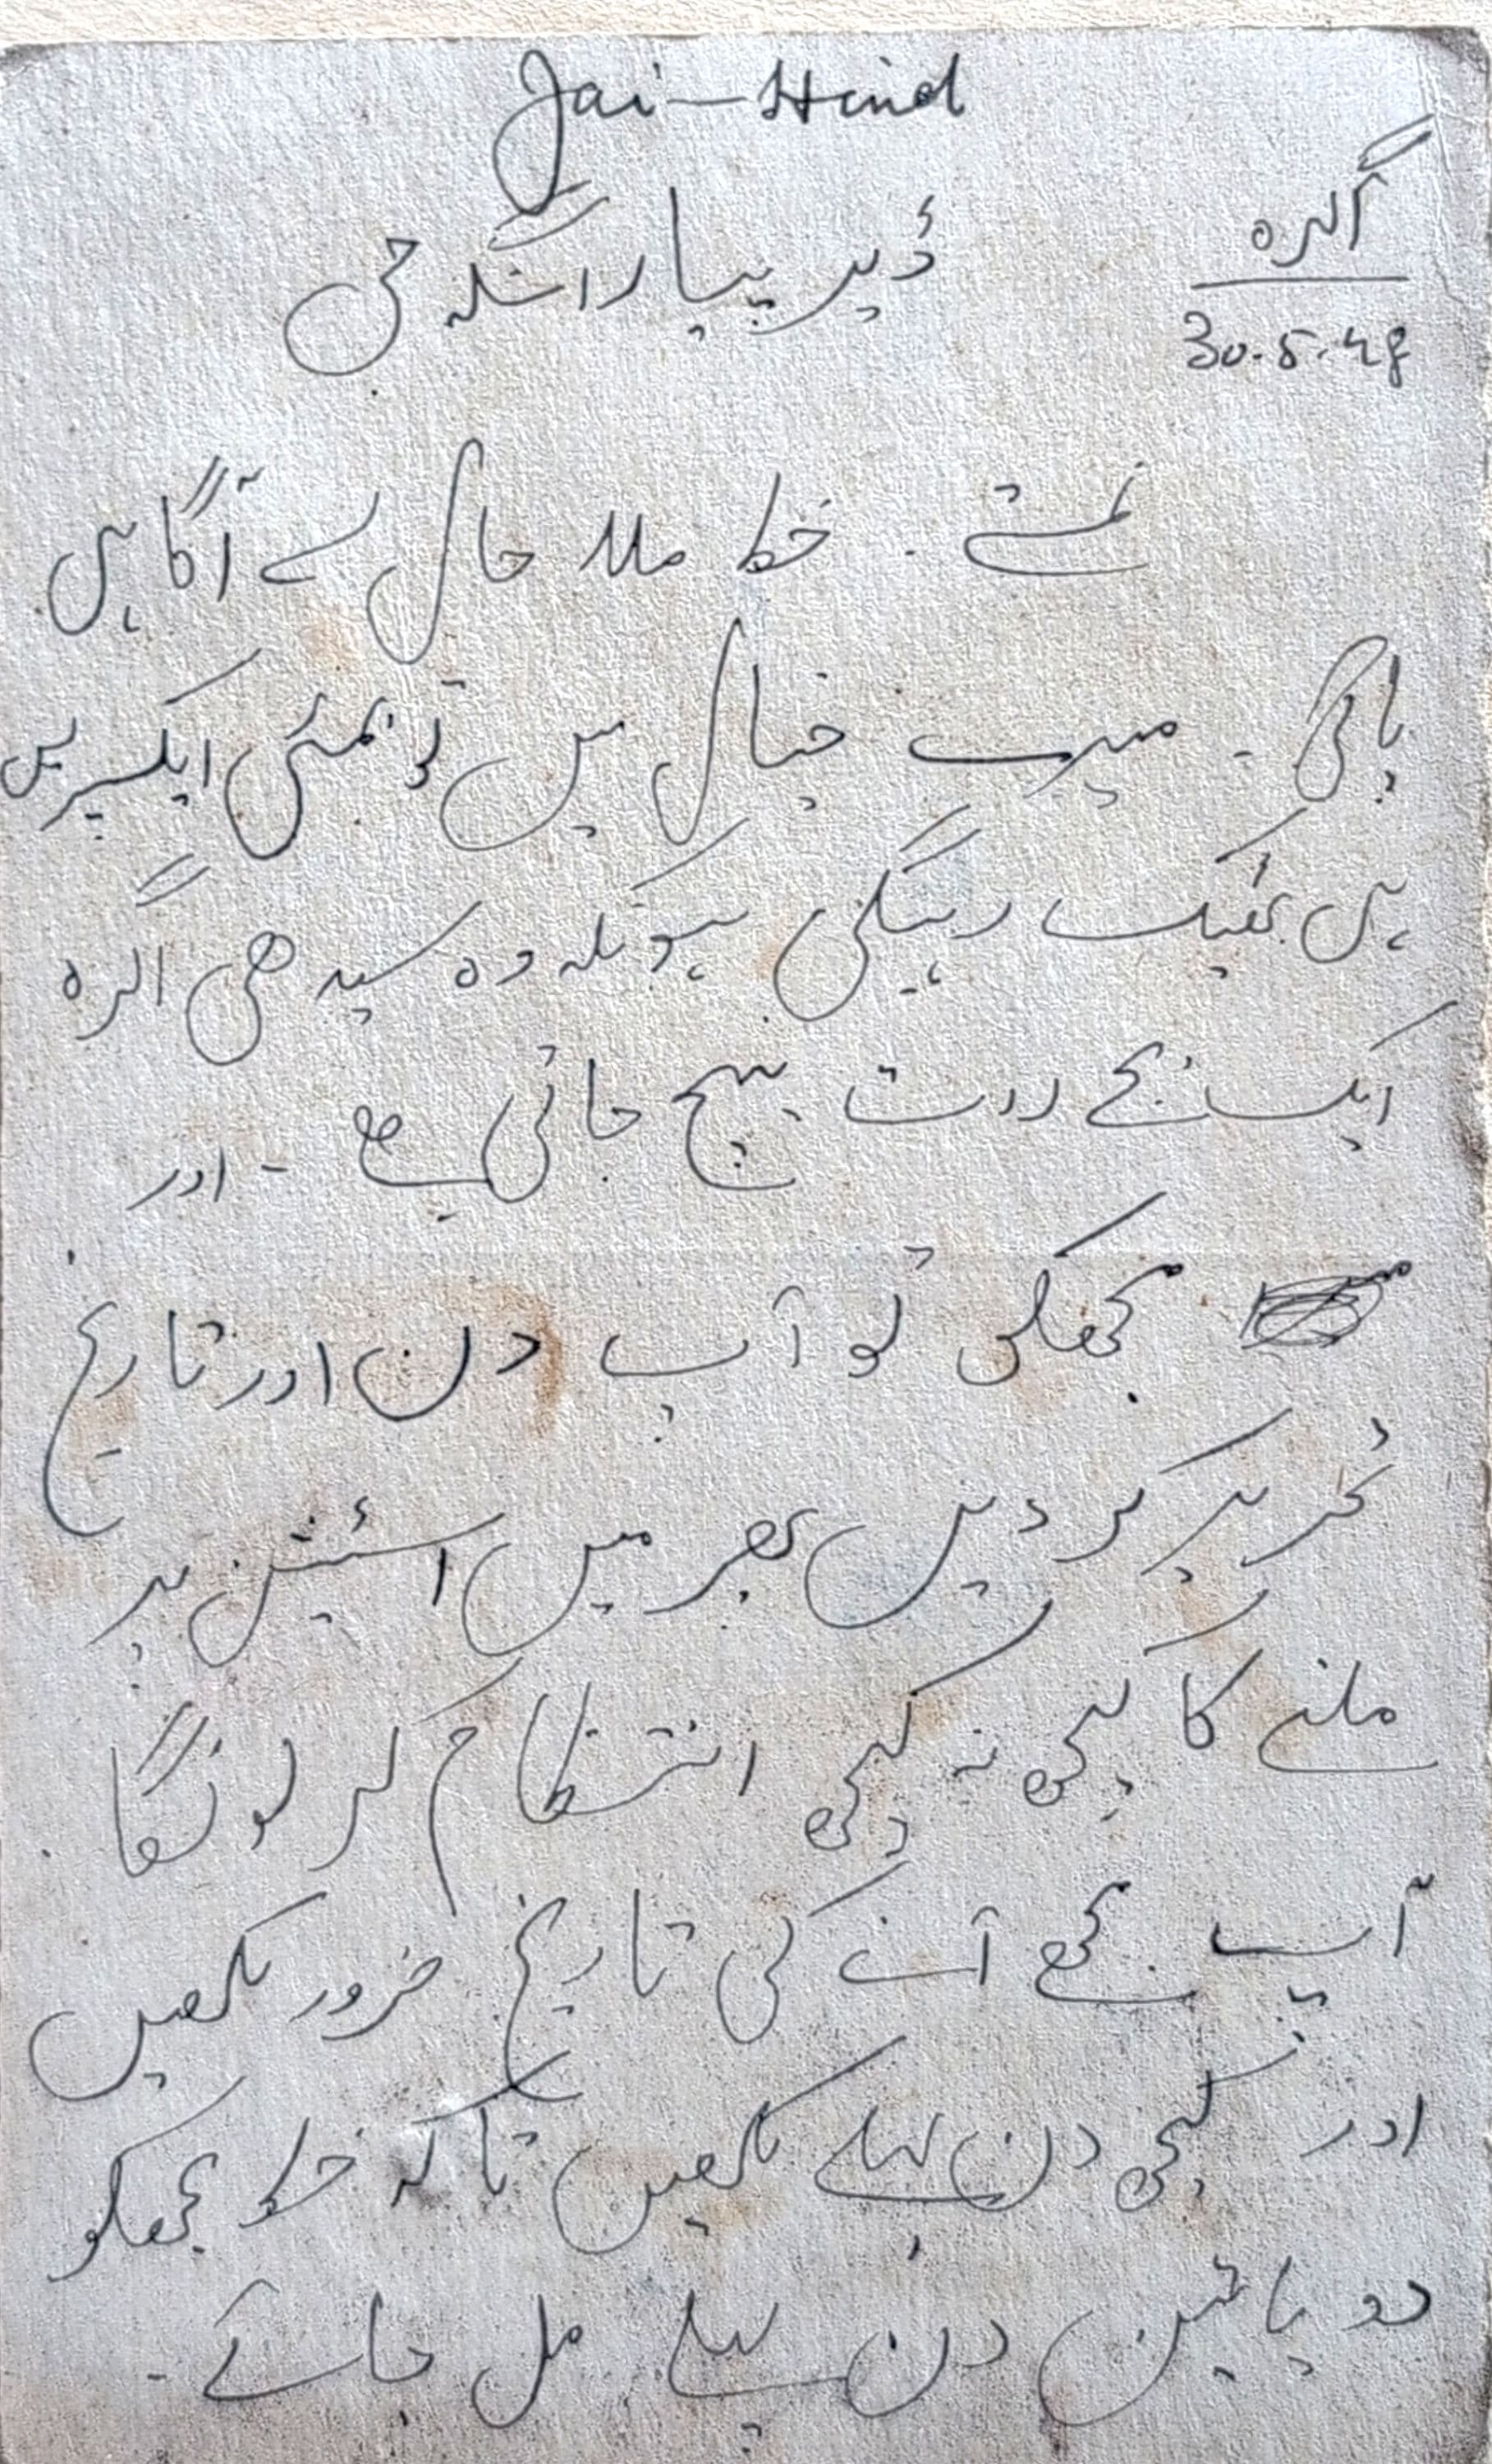 Jai-Hind
آگرہ
30.5.48
ڈیر پیارا سنگہ جی
نمستے ۔ خط ملا حال سے آگاہی
باقی ۔ میرے خیال میں تو بمبئی ایکسپریس
ہی ٹھیک رہیگی کیونکہ وہ سیدھی آگرہ
ایک بجے رات پہنچ جاتی ہے ۔ اور
مجھکو تو آپ دن اور تاریخ
تحریر کر دیں پھر میں اسٹیشن پر
ملنے کا کچھ نہ کچھ انتظام کر لونگا
آپ مجھے آنے کی تاریخ ضرور لکھیں
اور کچھ دن پہلے لکھیں تاکہ خط مجھکو
دو یا تین دن پہلے مل جائے ۔